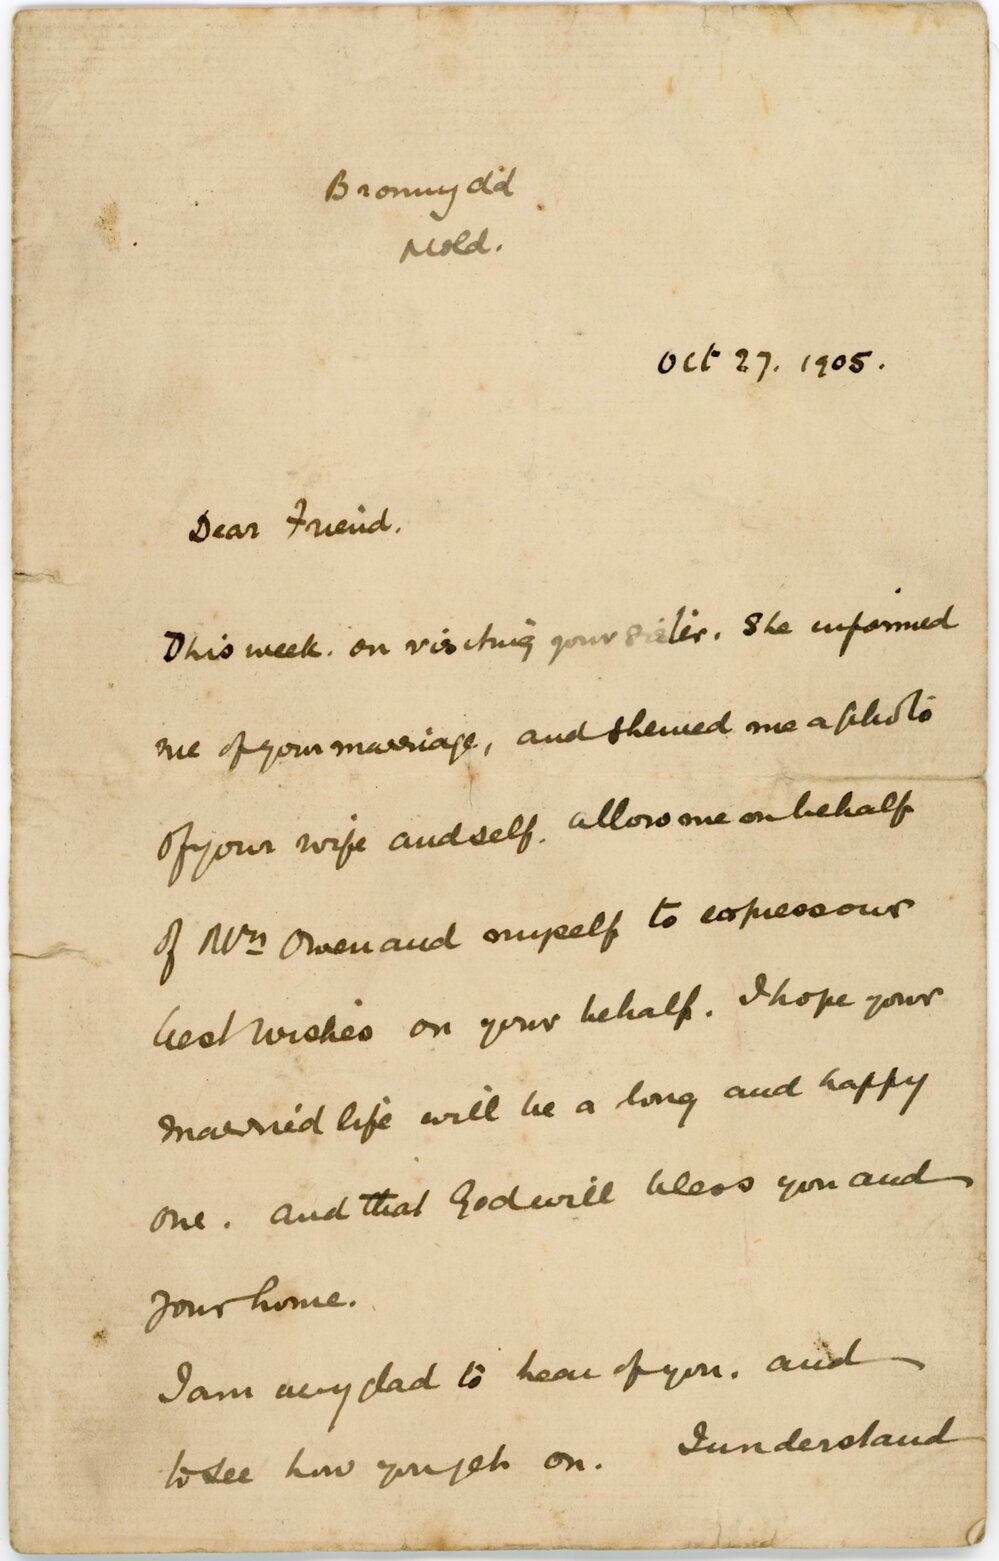 Bronwydd
Mold.
Oct 27. 1905.
Dear Friend.
This week. on visiting your sister. She informed
me of your marriage, and shewed me a photo
of your wife and self. allow me on behalf
of Mrs Owen and myself to express our
best wishes on your behalf. I hope your
married life will be a long and happy
one. and that God will bless you and
your home.
I am always glad to hear of you. and
to see how you get on. I understand